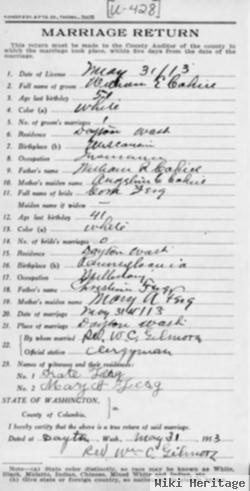 U-428
MARRIAGE RETURN
This return must be made to the County Auditor of the county in
which the marriage took place, within five days from the date of the
marriage.
1. Date of License May 31/13
2. Full name of groom William E Cahill
3. Age last birthday
4. Color (a) White
5. No. of groom's marriages 1
6. Residence Dayton Wash
7. Birthplace (b) Wisconsin
8. Occupation
9. Father's name William Cahill
10. Mother's maiden name Cahill
11. Full name of bride Cora
Maiden name if widow –
12. Age last birthday 41
13. Color (a) White
14. No. of bride's marriages 0
15. Residence Dayton Wash
16. Birthplace (b) Pennsylvania
17. Occupation Milliner
18. Father's name
19. Mother's maiden name Mary A
20. Date of marriage May 31st 1913
21. Place of marriage Dayton Wash
22. By whom married Rev. W. C. Gilmore
Official station Clergyman
23. Names of witnesses and their residences:
No. 1
No. 2
STATE OF WASHINGTON,
County of Columbia.
I hereby certify that the above is a true return of said marriage.
Dated at Dayton Wash., May 31 1913
Rev Wm C Gilmore
Note—(a) State color distinctly, so race may be known as White,
Black, Mulatto, Indian, Chinese, Mixed White and Indian, etc.
(b) Give state or foreign country, so nationality
Wiki Heritage